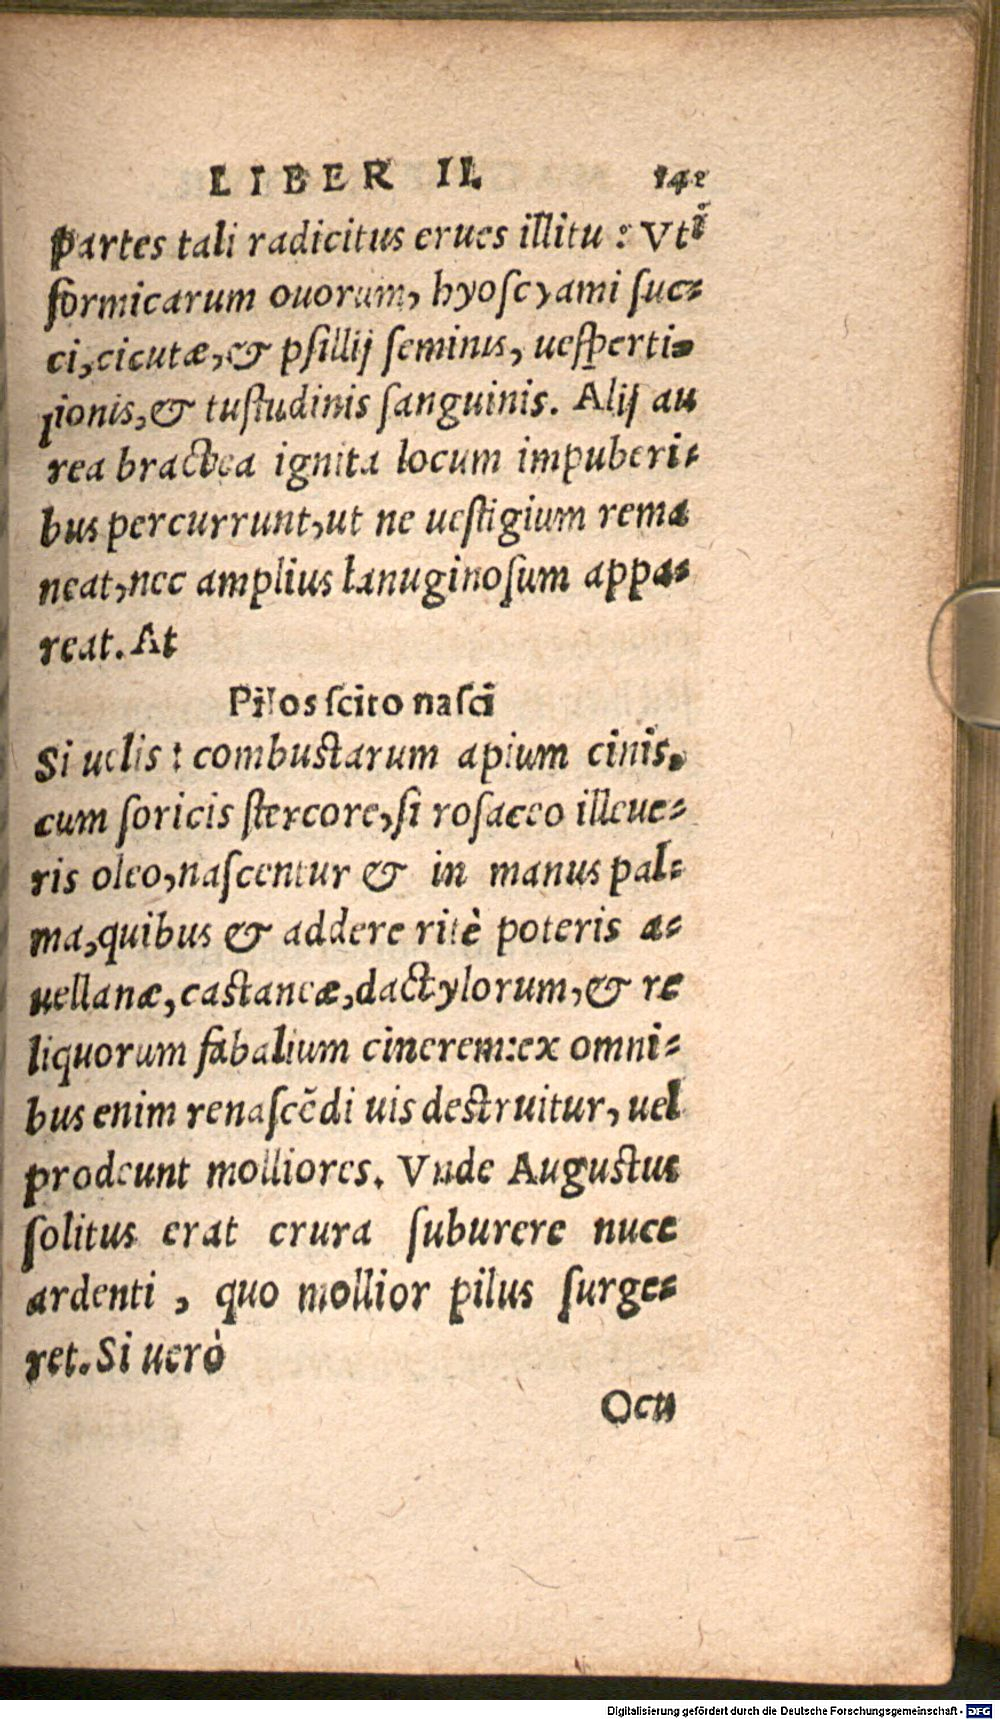 LIBER II. 141
partes tali radicitus erues illitu : Vti
formicarum ouorum, hyoscyami suc-
ci, cicutæ, & psillij seminis, uesperti-
lionis, & tustudinis sanguinis. Alij au
rea bractea ignita locum impuberi-
bus percurrunt, ut ne uestigium rema
neat, nec amplius lanuginosum appa-
reat. At
Pilos scito nasci
Si uelis : combustarum apium cinis,
cum soricis stercore, si rosaceo illeue-
ris oleo, nascentur & in manus pal-
ma, quibus & addere ritè poteris a-
uellanæ, castaneæ, dactylorum, & re
liquorum fabalium cinerem: ex omni-
bus enim renascēdi uis destruitur, uel
prodeunt molliores. Vnde Augustus
solitus erat crura suburere nuce
ardenti, quo mollior pilus surge-
ret. Si uerò
Ocu
Digitalisierung gefördert durch die Deutsche Forschungsgemeinschaft - DFG